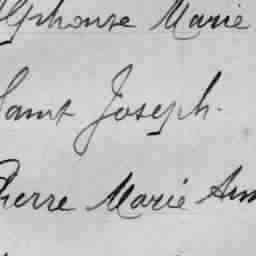 Alphonse Marie
Saint Joseph.
Pierre Marie